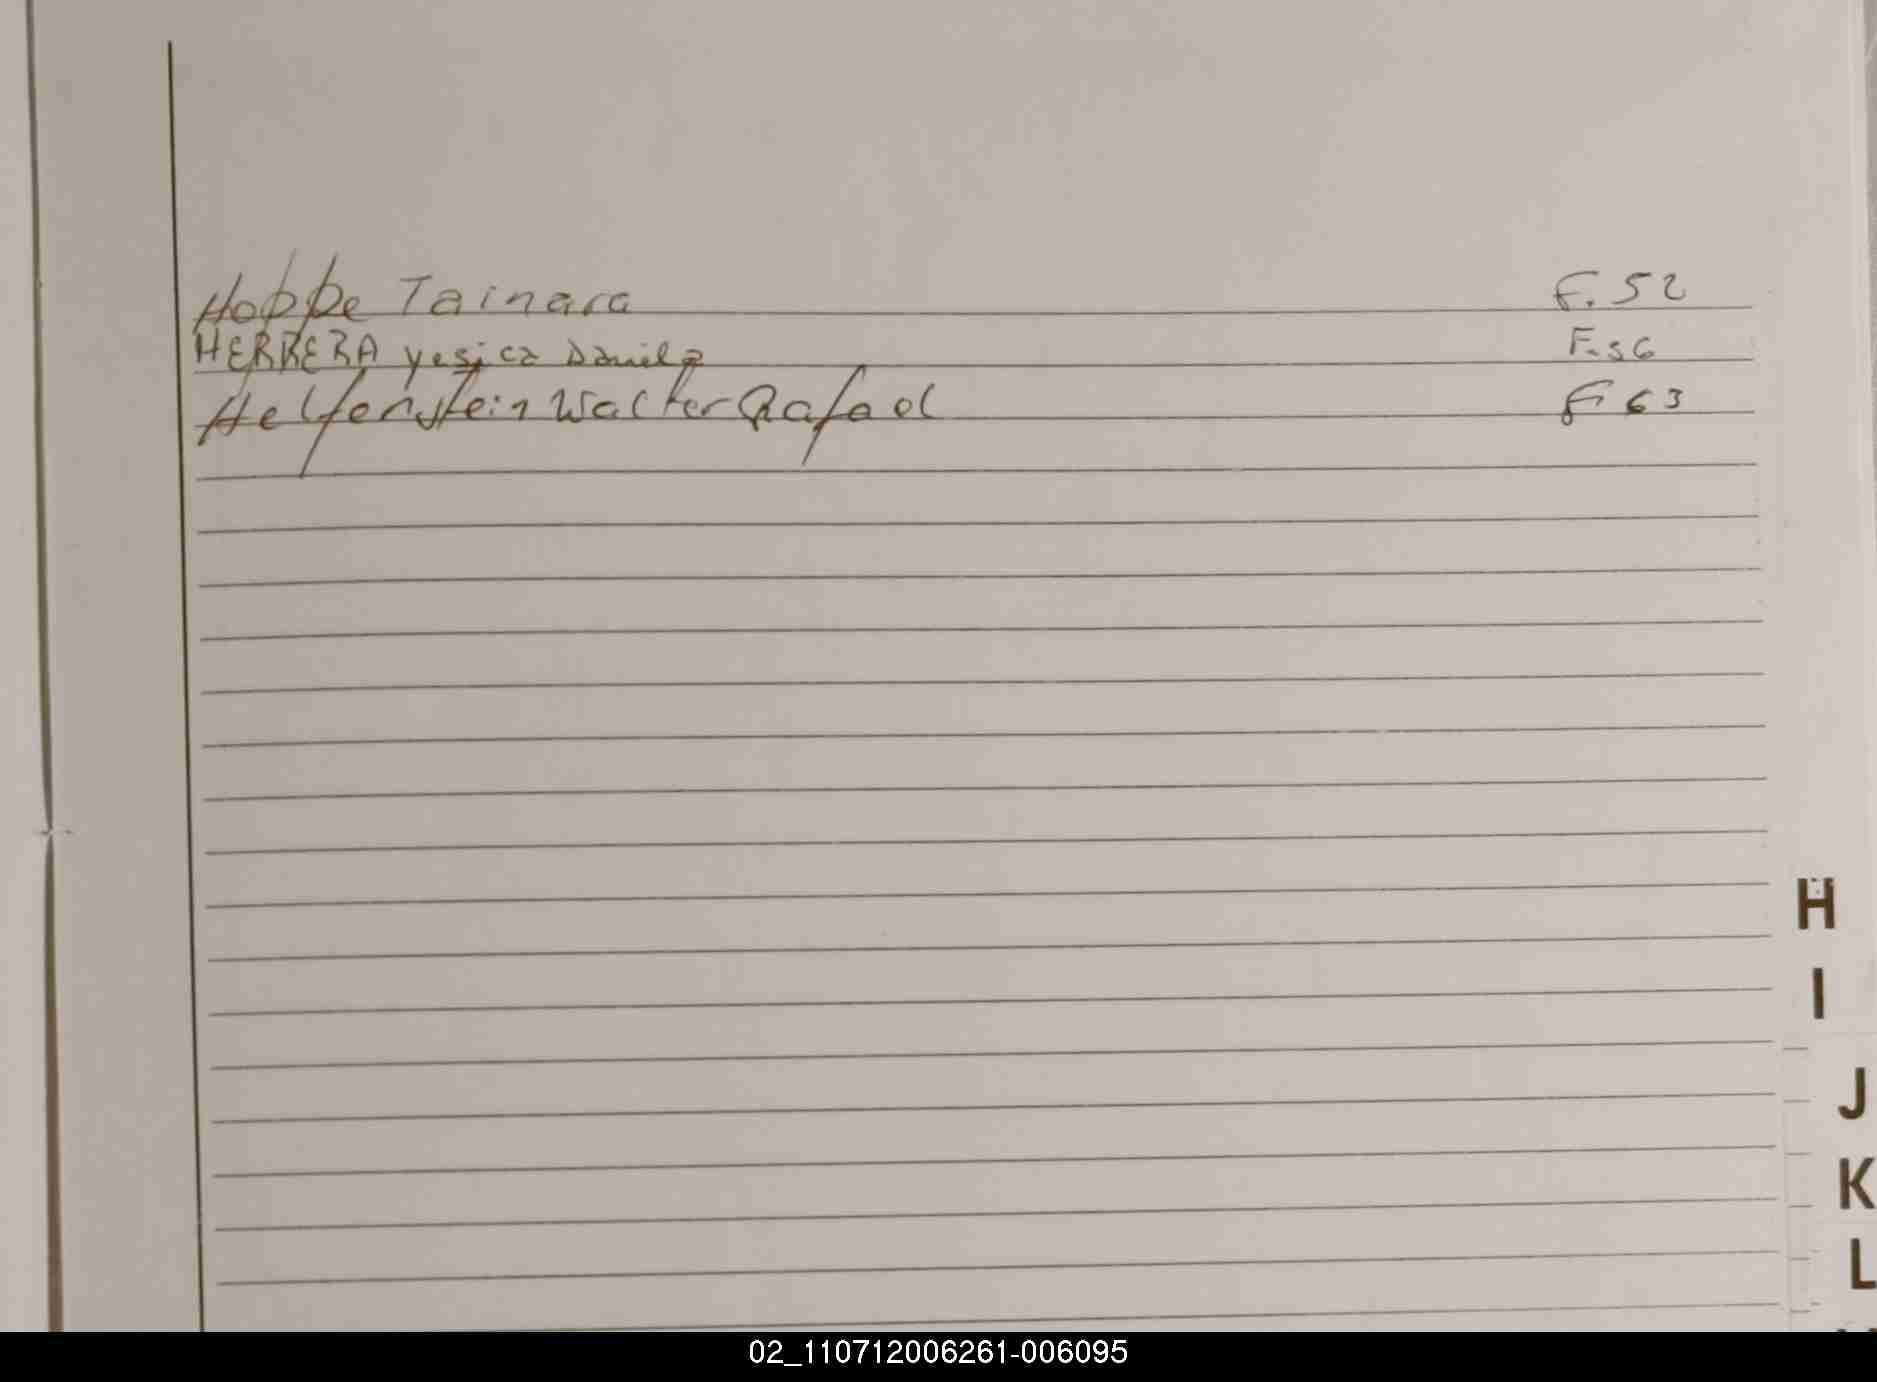 Hoppe Tainara F. 52
HERRERA yesica Daniela F. 56
Helfenstein Walter Rafael F 63
H
I
J
K
L
02_110712006261-006095